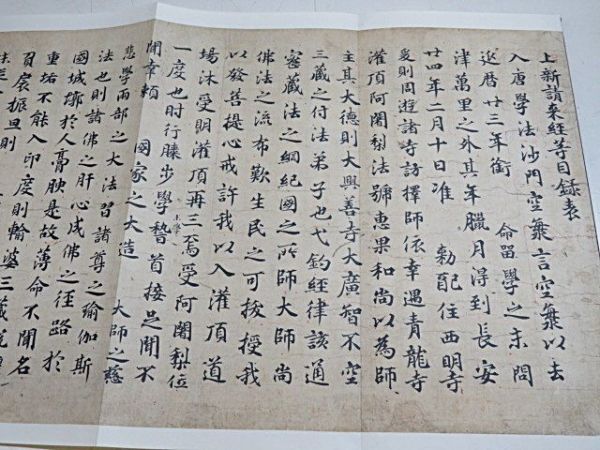 上新請來經等目錄表
入唐學法沙門空海言空海以去
延曆廿三年銜 命留學之末問
津萬里之外其年臘月得到長安
廿四年二月十日准 勅配住西明寺
爰則周遊諸寺訪擇師依幸遇青龍寺
灌頂阿闍梨法號惠果和尚以為師
主其大德則大興善寺大廣智不空
三藏之付法弟子也弋釣經律該通
密藏法之綱紀國之所師大師尚
佛法之流布歎生民之可拔授我
以發菩提心戒許我以入灌頂道
場沐受明灌頂再三焉受阿闍梨位
一度也肘行膝步學未學稽首接足聞不
聞幸賴 國家之大造 大師之慈
悲學兩部之大法習諸尊之瑜伽斯
法也則諸佛之肝心成佛之徑路於
國城墎於人膏腴是故薄命不聞名
重垢不能入印度則輸婆三藏
負扆振旦則